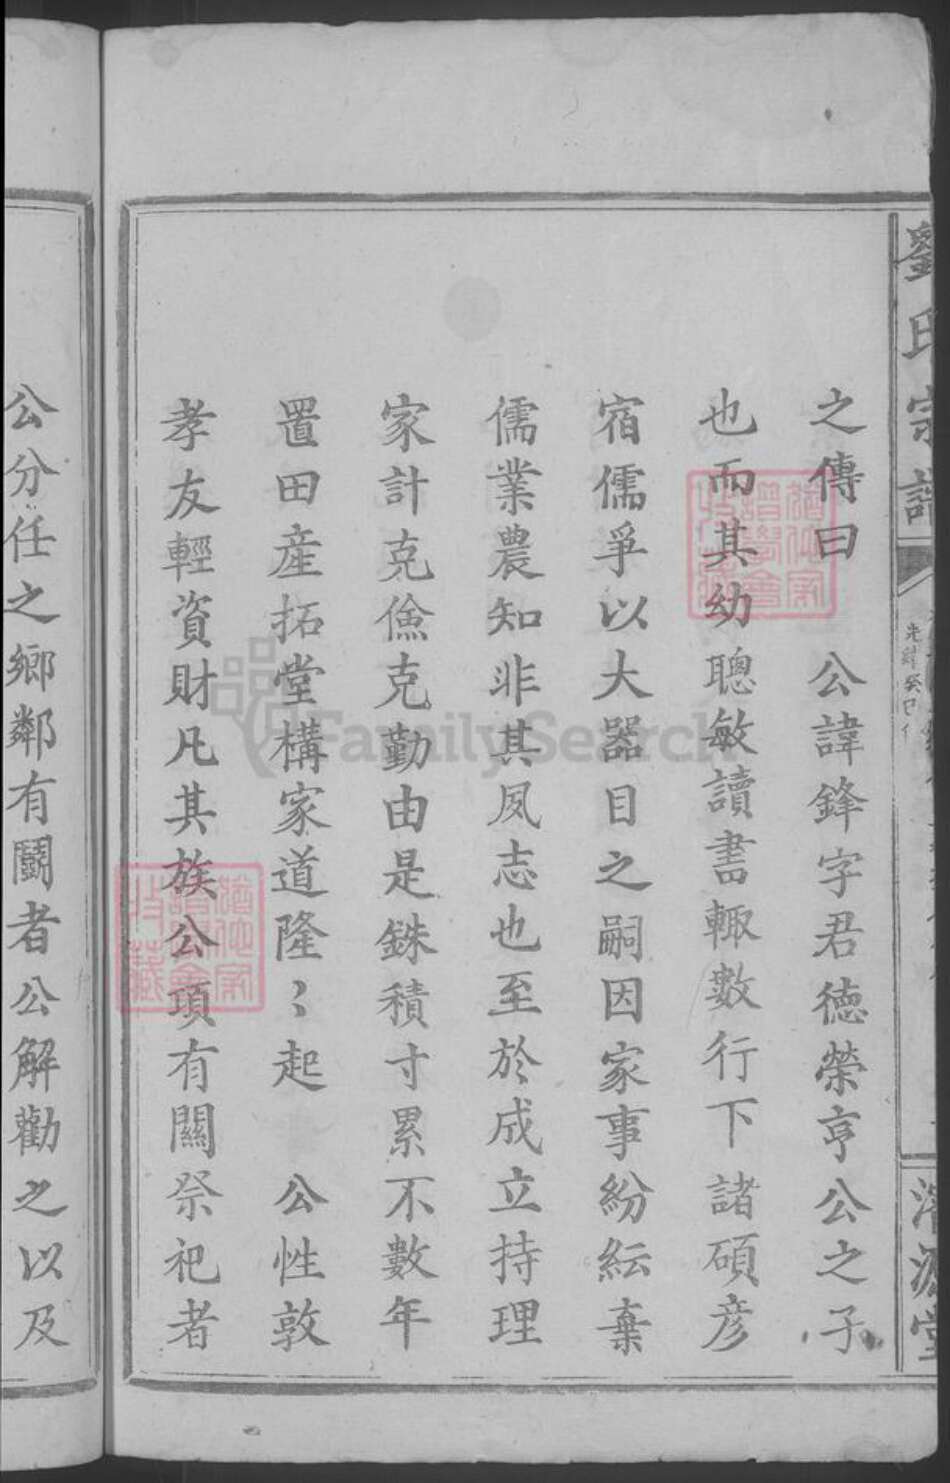 劉氏宗譜
光緒癸巳
之傳曰　公諱鋒字君德榮亨公之子
也而其幼聰敏讀書輙數行下諸碩彥
宿儒爭以大器目之嗣因家事紛紜棄
儒業農知非其夙志也至於成立持理
家計克儉克勤由是銖積寸累不數年
置田産拓堂構家道隆〻起　公性敦
孝友輕資財凡其族公項有關祭祀者
公分任之鄉鄰有鬪者公解勸之以及
FamilySearch